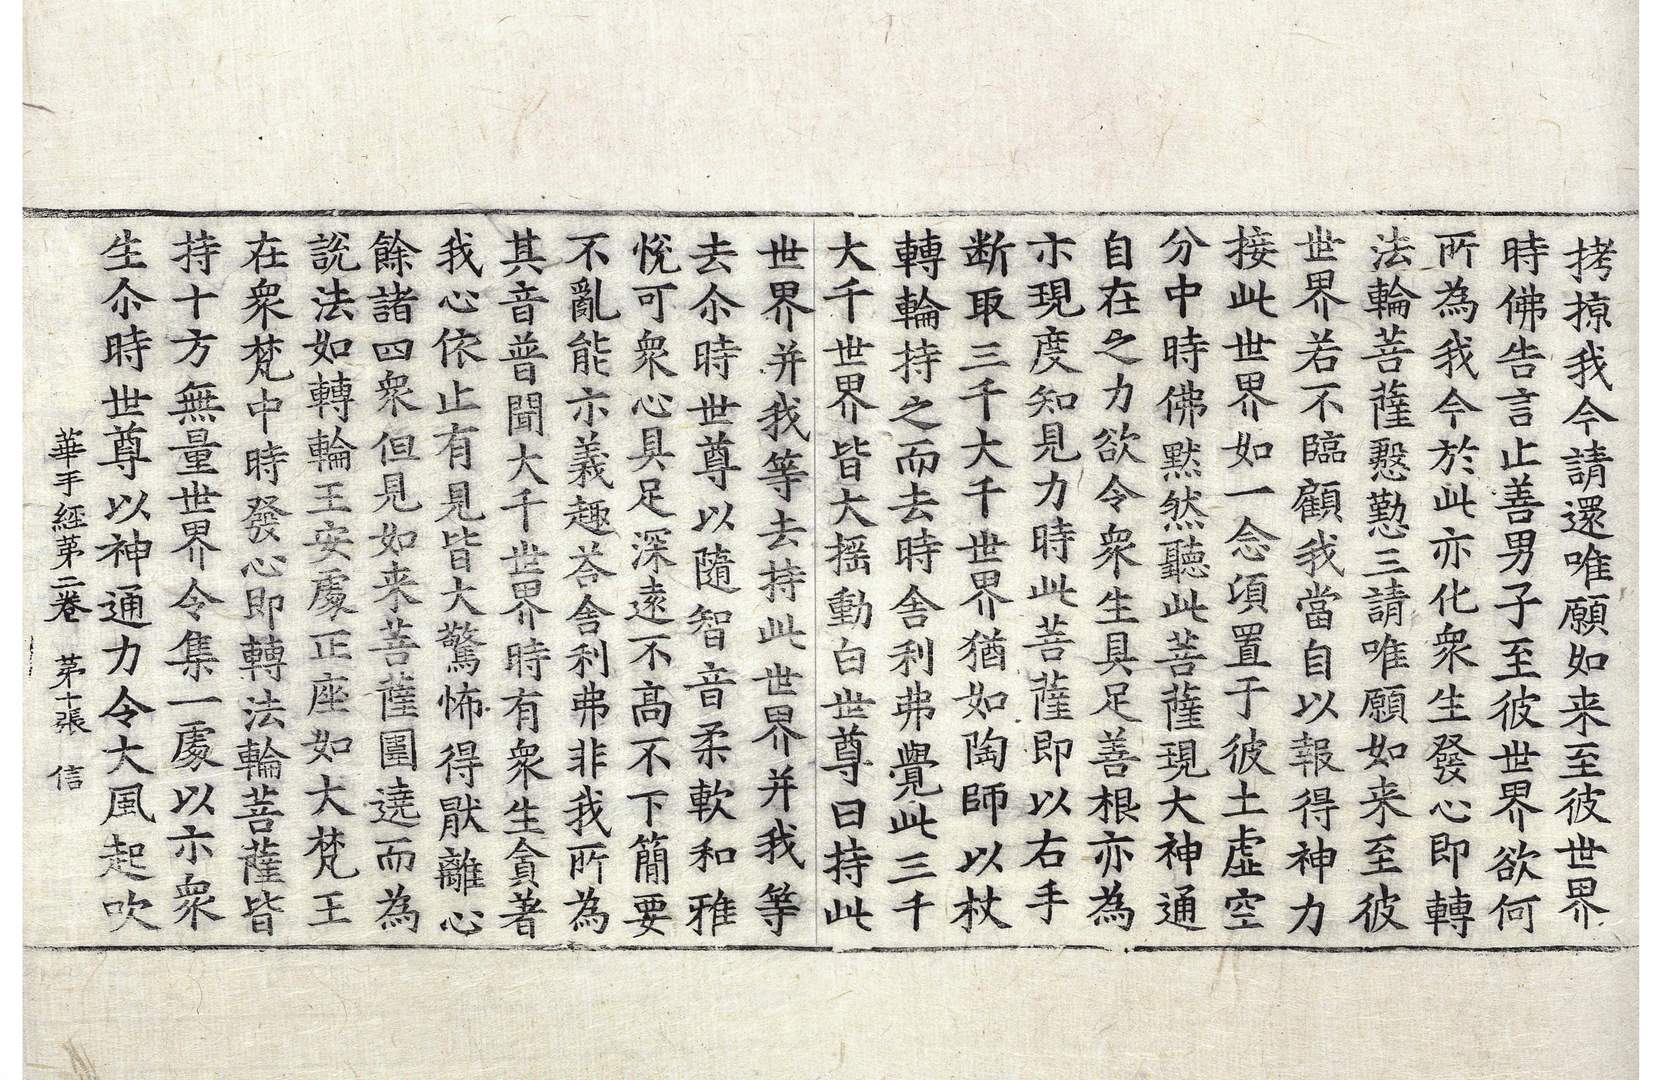 拷掠我今請還唯願如来至彼世界
時佛告言止善男子至彼世界欲何
所為我今於此亦化衆生發心即轉
法輪菩薩慇懃三請唯願如来至彼
世界若不臨顧我當自以報得神力
接此世界如一念頃置于彼土虛空
分中時佛黙然聽此菩薩現大神通
自在之力欲令衆生具足善根亦為
示現度知見力時此菩薩即以右手
断取三千大千世界猶如陶師以杖
轉輪持之而去時舍利弗覺此三千
大千世界皆大揺動白世尊曰持此
世界并我等去持此世界并我等
去尒時世尊以隨智音柔軟和雅
悅可衆心具足深遠不高不下簡要
不亂能示義趣荅舍利弗非我所為
其音普聞大千世界時有衆生貪著
我心依止有見皆大驚怖得猒離心
餘諸四衆但見如来菩薩圍遶而為
說法如轉輪王安處正座如大梵王
在衆梵中時發心即轉法輪菩薩皆
持十方無量世界令集一處以示衆
生尒時世尊以神通力令大風起吹
華手經第二卷　第十張　信